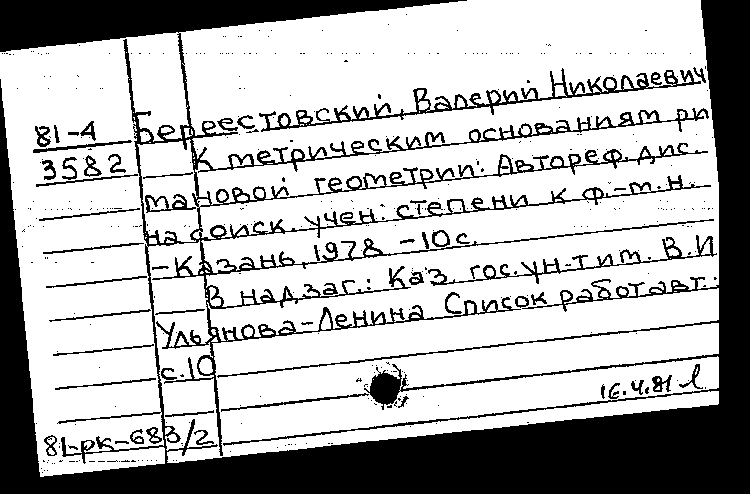 81-4 Береестовский, Валерий Николаевич
3582 К метрическим основаниям ри
мановой геометрии: Автореф. дис.
на соиск. учен. степени к ф.-м.н.
-Казань, 1978 -10 с.
В надзаг.: Каз. гос. ун-т им. В.И
Ульянова-Ленина Список работ авт.:
с. 10
16.4.81
81-рк-683/2